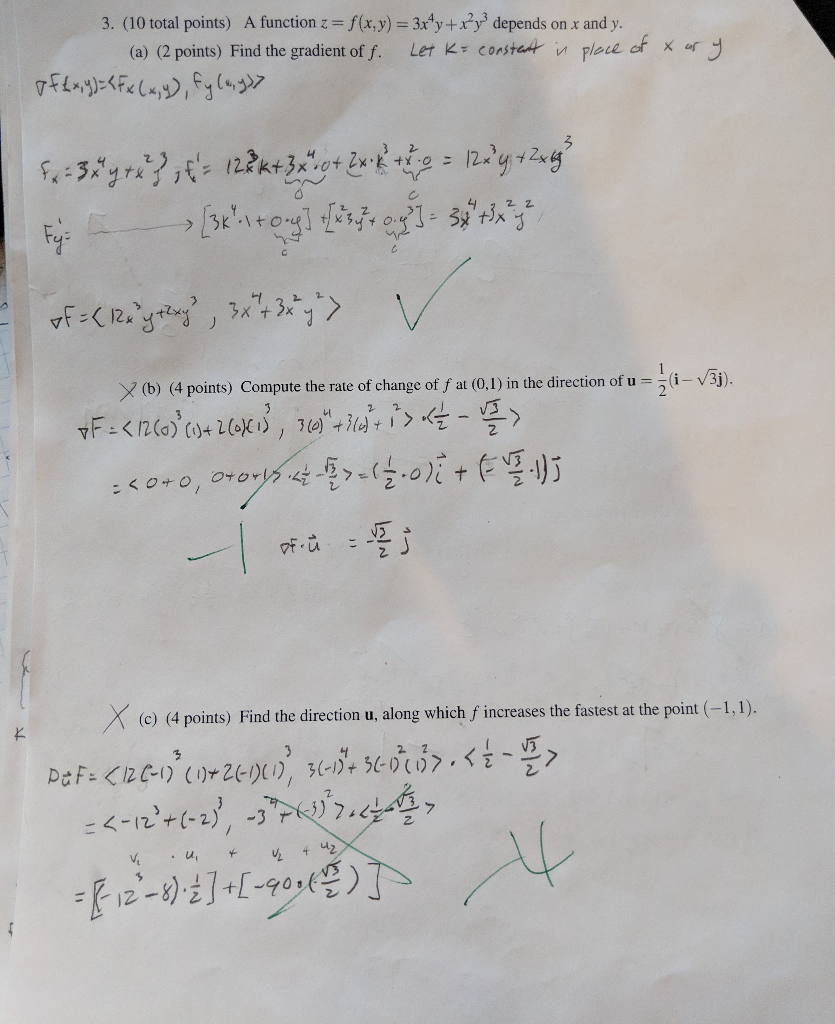 3. (10 total points) A function z = f(x,y) = 3x⁴y + x²y³ depends on x and y.
(a) (2 points) Find the gradient of f. Let K = constant in place of x or y
∇f(x,y)=<Fx(x,y), Fy(x,y)>
fx = 3x⁴y+x²y³; f' = 12x³k+3x⁴·0+2x·k³+x²·0 = 12x³y+2xy³
0 0
Fy'= → [3k⁴·1+0·y]+[x²3y²+0·y³] = 3x⁴+3x²y²
∇F=<12x³y+2xy³, 3x⁴+3x²y²> ✓
X (b) (4 points) Compute the rate of change of f at (0,1) in the direction of u = 1/2(i − √3j).
∇F=<12(0)³(1)+2(0)(1)³, 3(0)⁴+3(0)²+1²>·<1/2 − √3/2>
=<0+0, 0+0+1>·<1/2 −√3/2>=(1/2·0)i + (−√3/2·1)j
−1 ∇F·u = −√3/2 j
K
X (c) (4 points) Find the direction u, along which f increases the fastest at the point (−1,1).
DuF=<12(-1)³(1)+2(-1)(1)³, 3(-1)⁴+3(-1)²(1)²>·<1/2 − √3/2>
=<-12³+(-2)³, -3⁴+(-3)²>·<1/2 −√3/2>
v₁ · u₁ + v₂ + u₂
=[(-12³-8)·1/2]+[-90·(√3/2)] −4